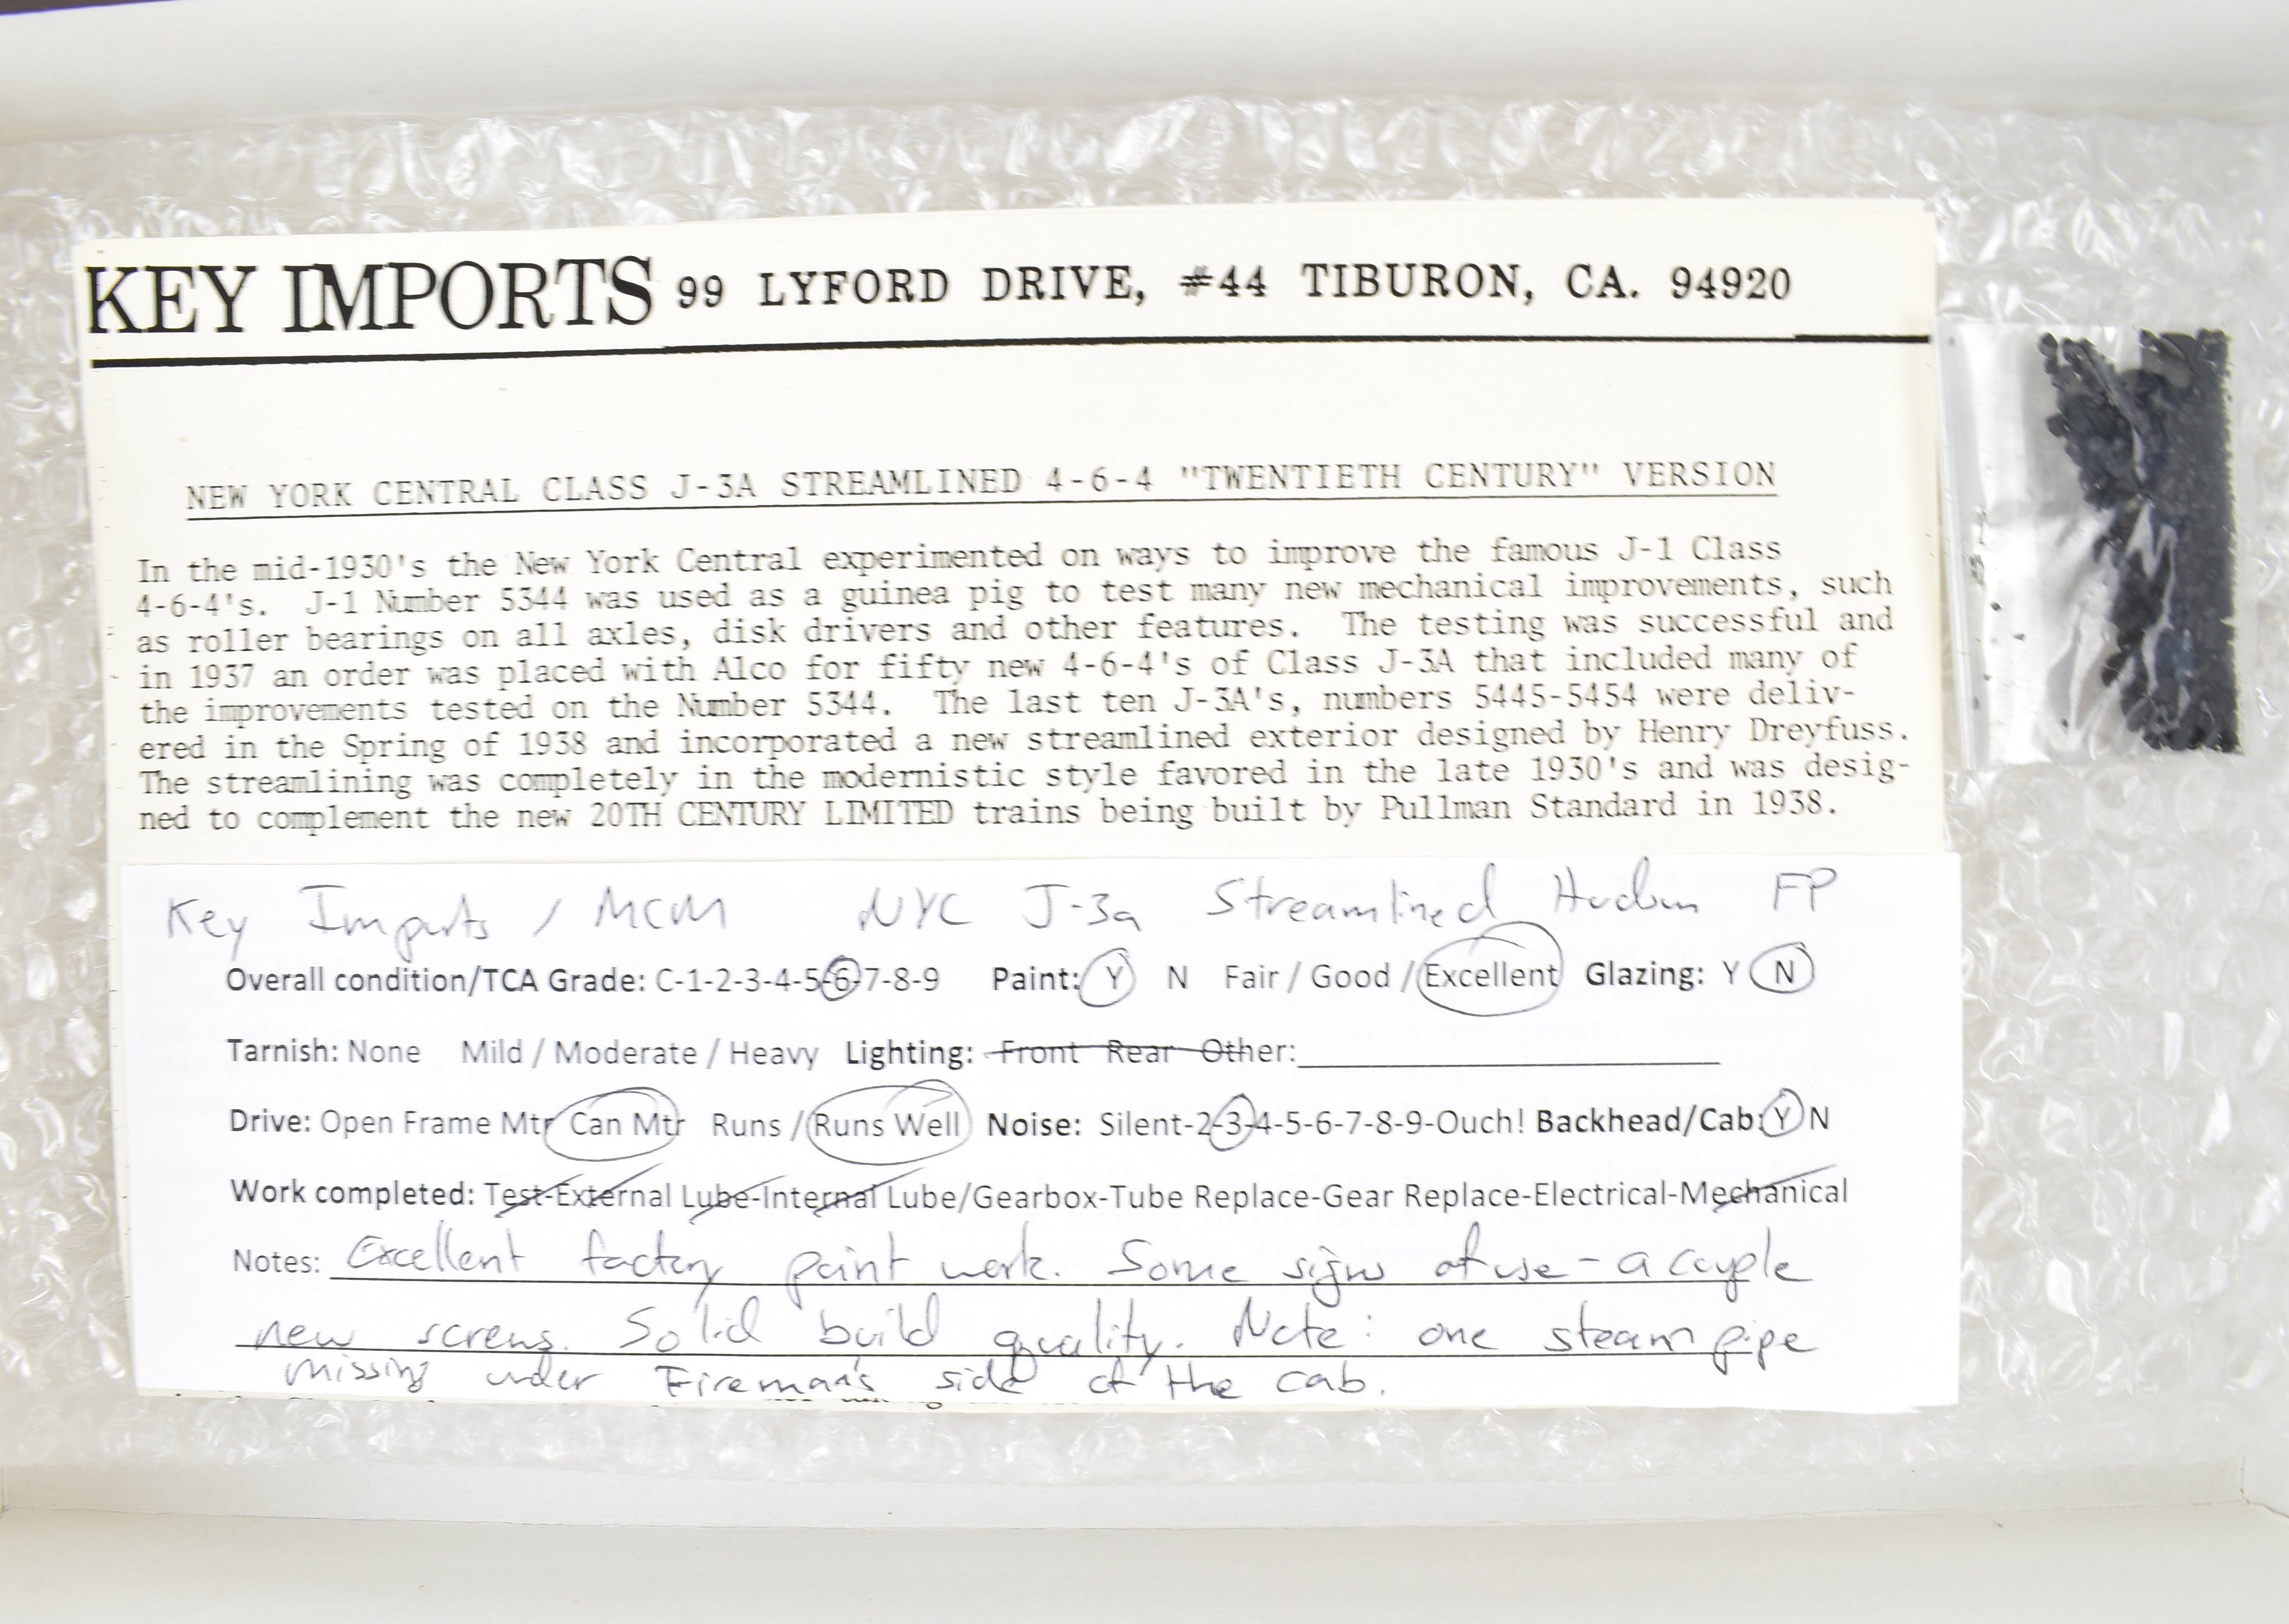 KEY IMPORTS 99 LYFORD DRIVE, #44 TIBURON, CA. 94920
NEW YORK CENTRAL CLASS J-3A STREAMLINED 4-6-4 "TWENTIETH CENTURY" VERSION
In the mid-1930's the New York Central experimented on ways to improve the famous J-1 Class
4-6-4's. J-1 Number 5344 was used as a guinea pig to test many new mechanical improvements, such
as roller bearings on all axles, disk drivers and other features. The testing was successful and
in 1937 an order was placed with Alco for fifty new 4-6-4's of Class J-3A that included many of
the improvements tested on the Number 5344. The last ten J-3A's, numbers 5445-5454 were deliv-
ered in the Spring of 1938 and incorporated a new streamlined exterior designed by Henry Dreyfuss.
The streamlining was completely in the modernistic style favored in the late 1930's and was desig-
ned to complement the new 20TH CENTURY LIMITED trains being built by Pullman Standard in 1938.
Key Imports / MCM NYC J-3a Streamlined Hudson FP
Overall condition/TCA Grade: C-1-2-3-4-5-6-7-8-9 Paint: Y N Fair / Good / Excellent Glazing: Y N
Tarnish: None Mild / Moderate / Heavy Lighting: Front Rear Other:
Drive: Open Frame Mtr Can Mtr Runs / Runs Well Noise: Silent-2-3-4-5-6-7-8-9-Ouch! Backhead/Cab: Y N
Work completed: Test-External Lube-Internal Lube/Gearbox-Tube Replace-Gear Replace-Electrical-Mechanical
Notes: Excellent factory paint work. Some signs of use - a couple
new screws. Solid build quality. Note: one steam pipe
missing under Fireman's side of the cab.